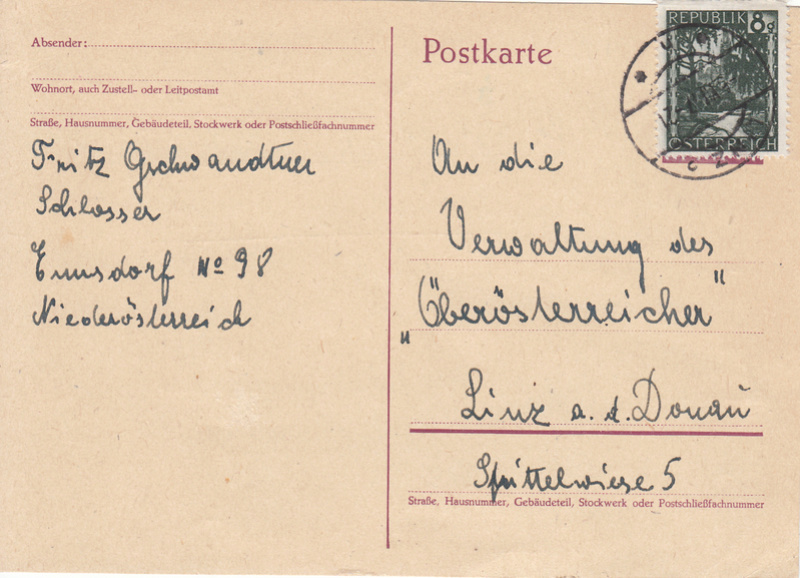 Absender:
Wohnort, auch Zustell- oder Leitpostamt
Straße, Hausnummer, Gebäudeteil, Stockwerk oder Postschließfachnummer
Fritz Gschwandtner
Schlosser
Ennsdorf No 98
Niederösterreich
Postkarte
REPUBLIK 8g
ÖSTERREICH
An die
Verwaltung des
„Oberösterreicher"
Linz a. d. Donau
Spittelwiese 5
Straße, Hausnummer, Gebäudeteil, Stockwerk oder Postschließfachnummer